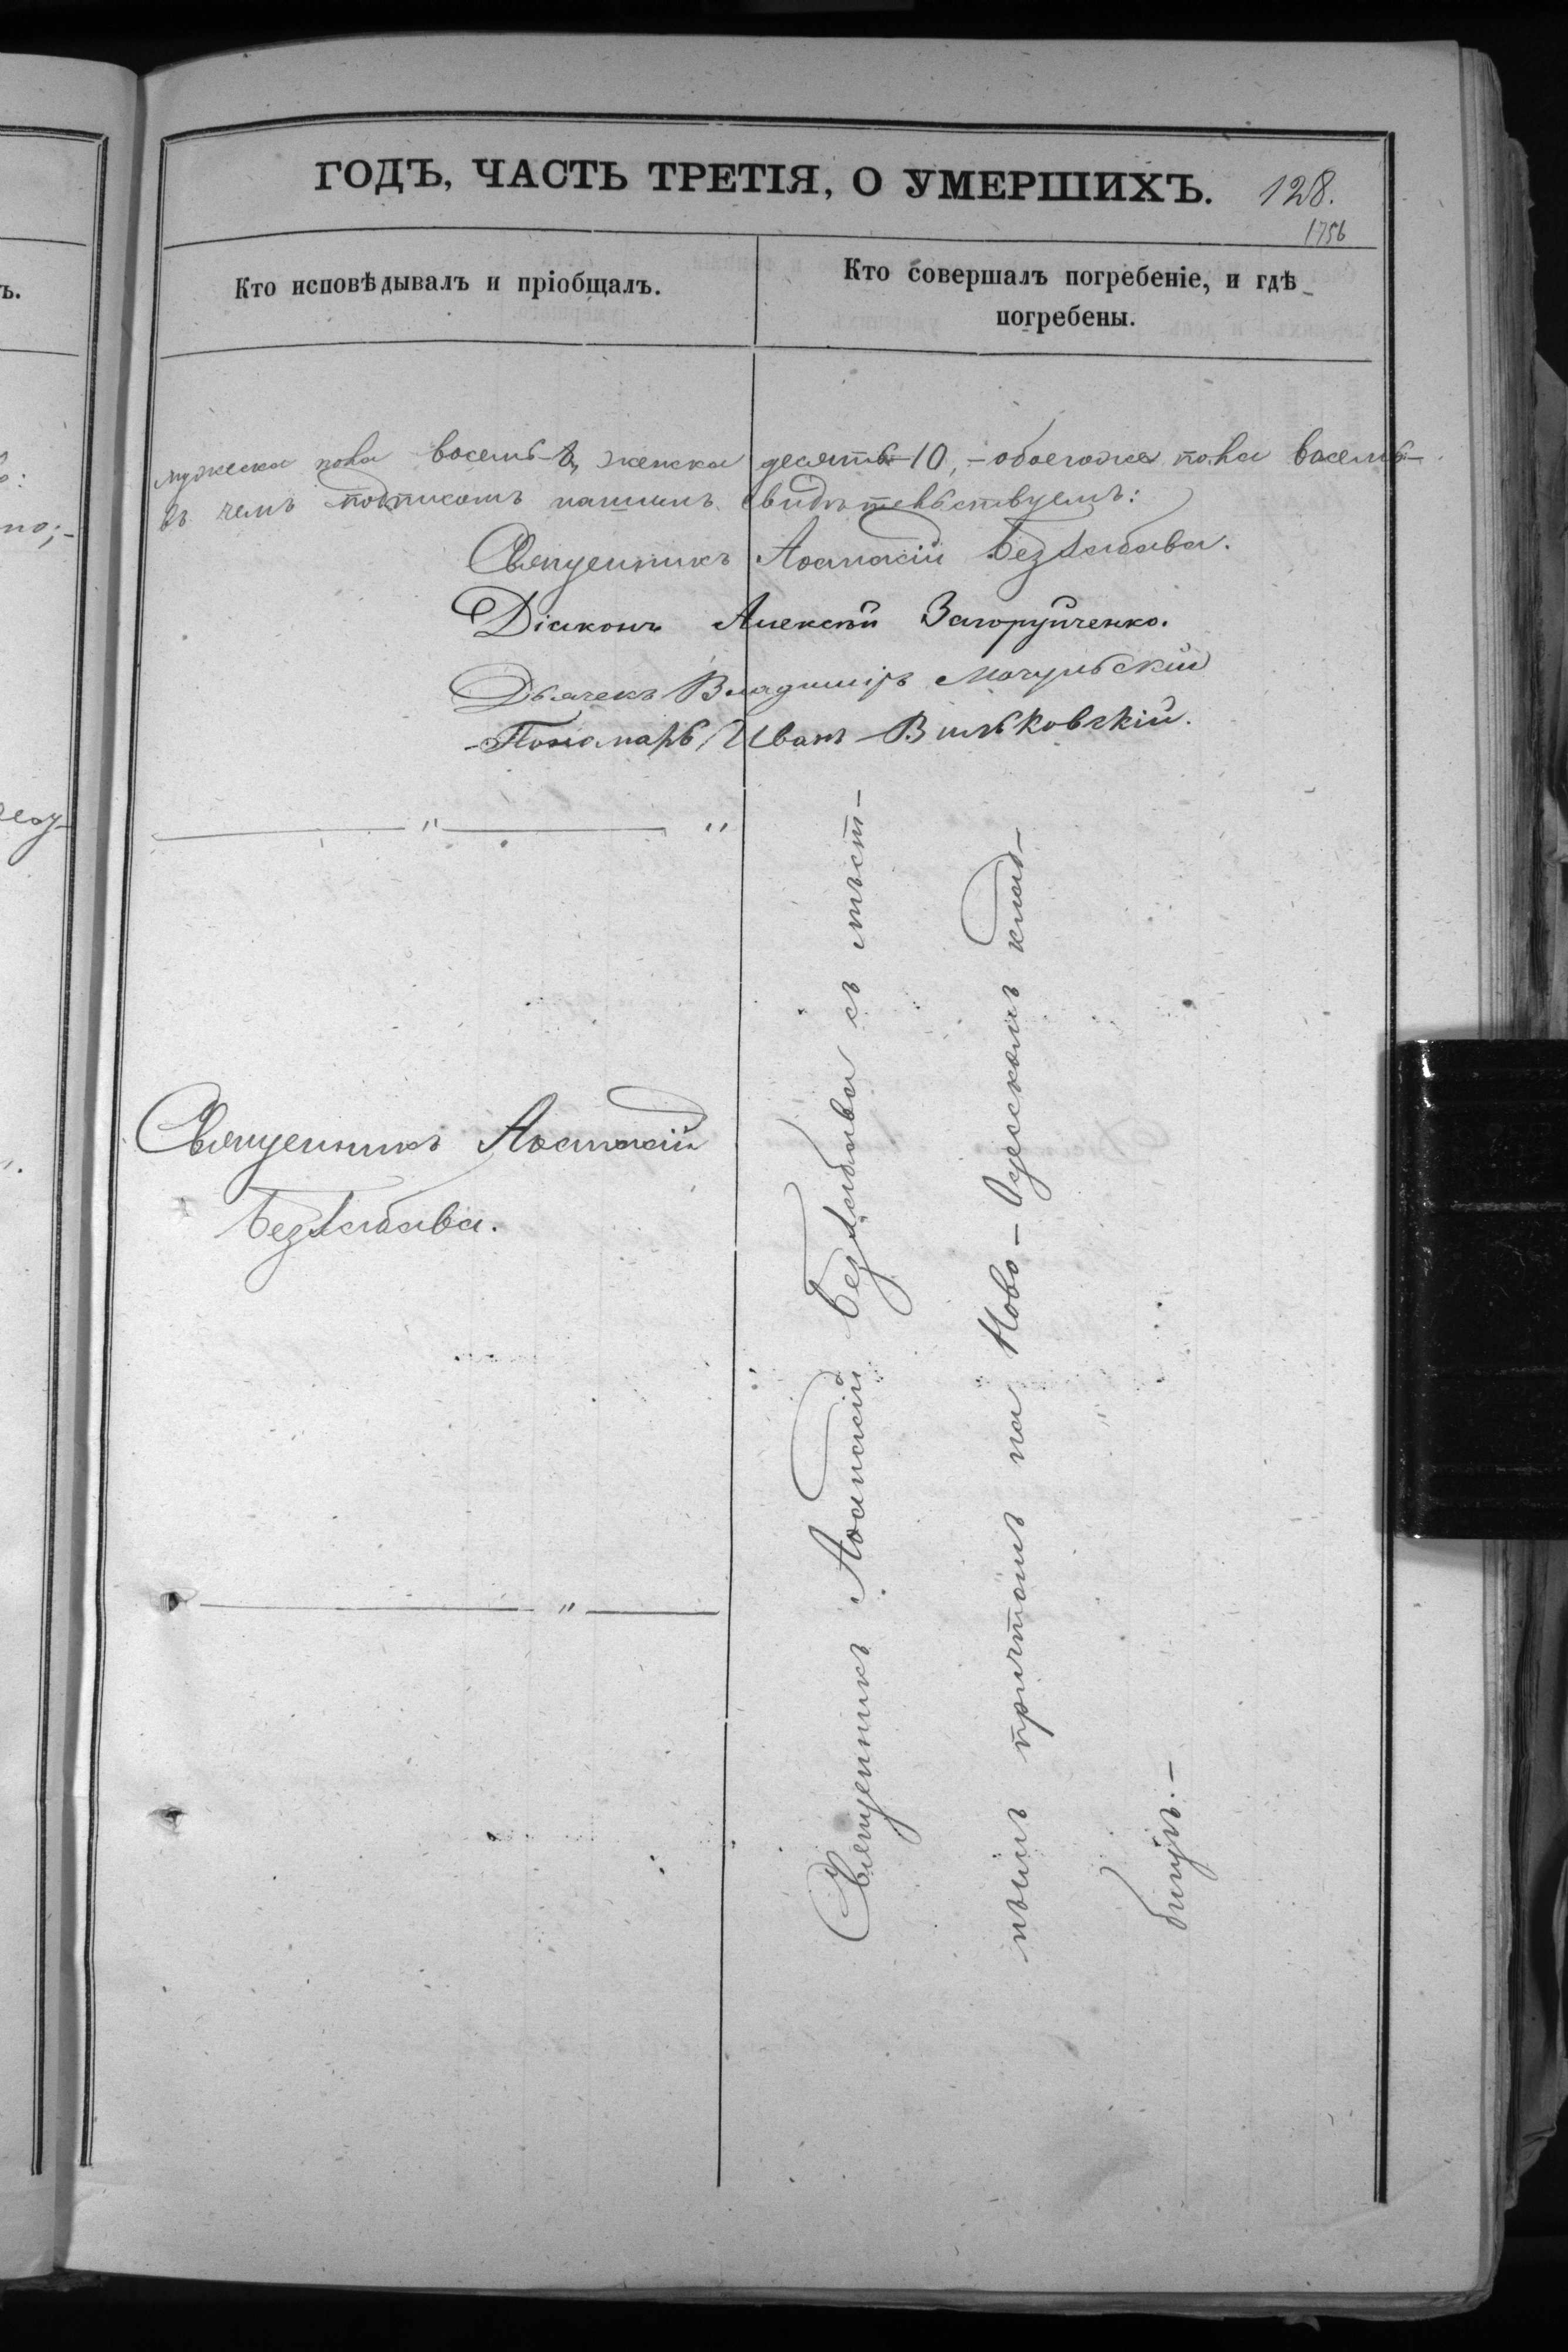 ГОДЪ, ЧАСТЬ ТРЕТІЯ, О УМЕРШИХЪ.
128.
1756
Кто исповѣдывалъ и пріобщалъ.
Кто совершалъ погребеніе, и гдѣ
погребены.
мужеска пола восемь-8, женска десять-10,-обоегоже пола восемь-
въ чемъ подписомъ нашимъ свидѣтельствуемъ:
Священникъ Аѳанасій Беззабава.
Діаконъ Алексѣй Загоруйченко.
Дьячекъ Владиміръ Мочульскій
Пономарь Иванъ Вильковскій.
Священникъ Аѳанасій
Беззабава.
Священникъ Аѳанасій Беззабава съ мѣст-
нымъ причтомъ на Ново-Одесскомъ клад-
бищѣ.-
ъ.